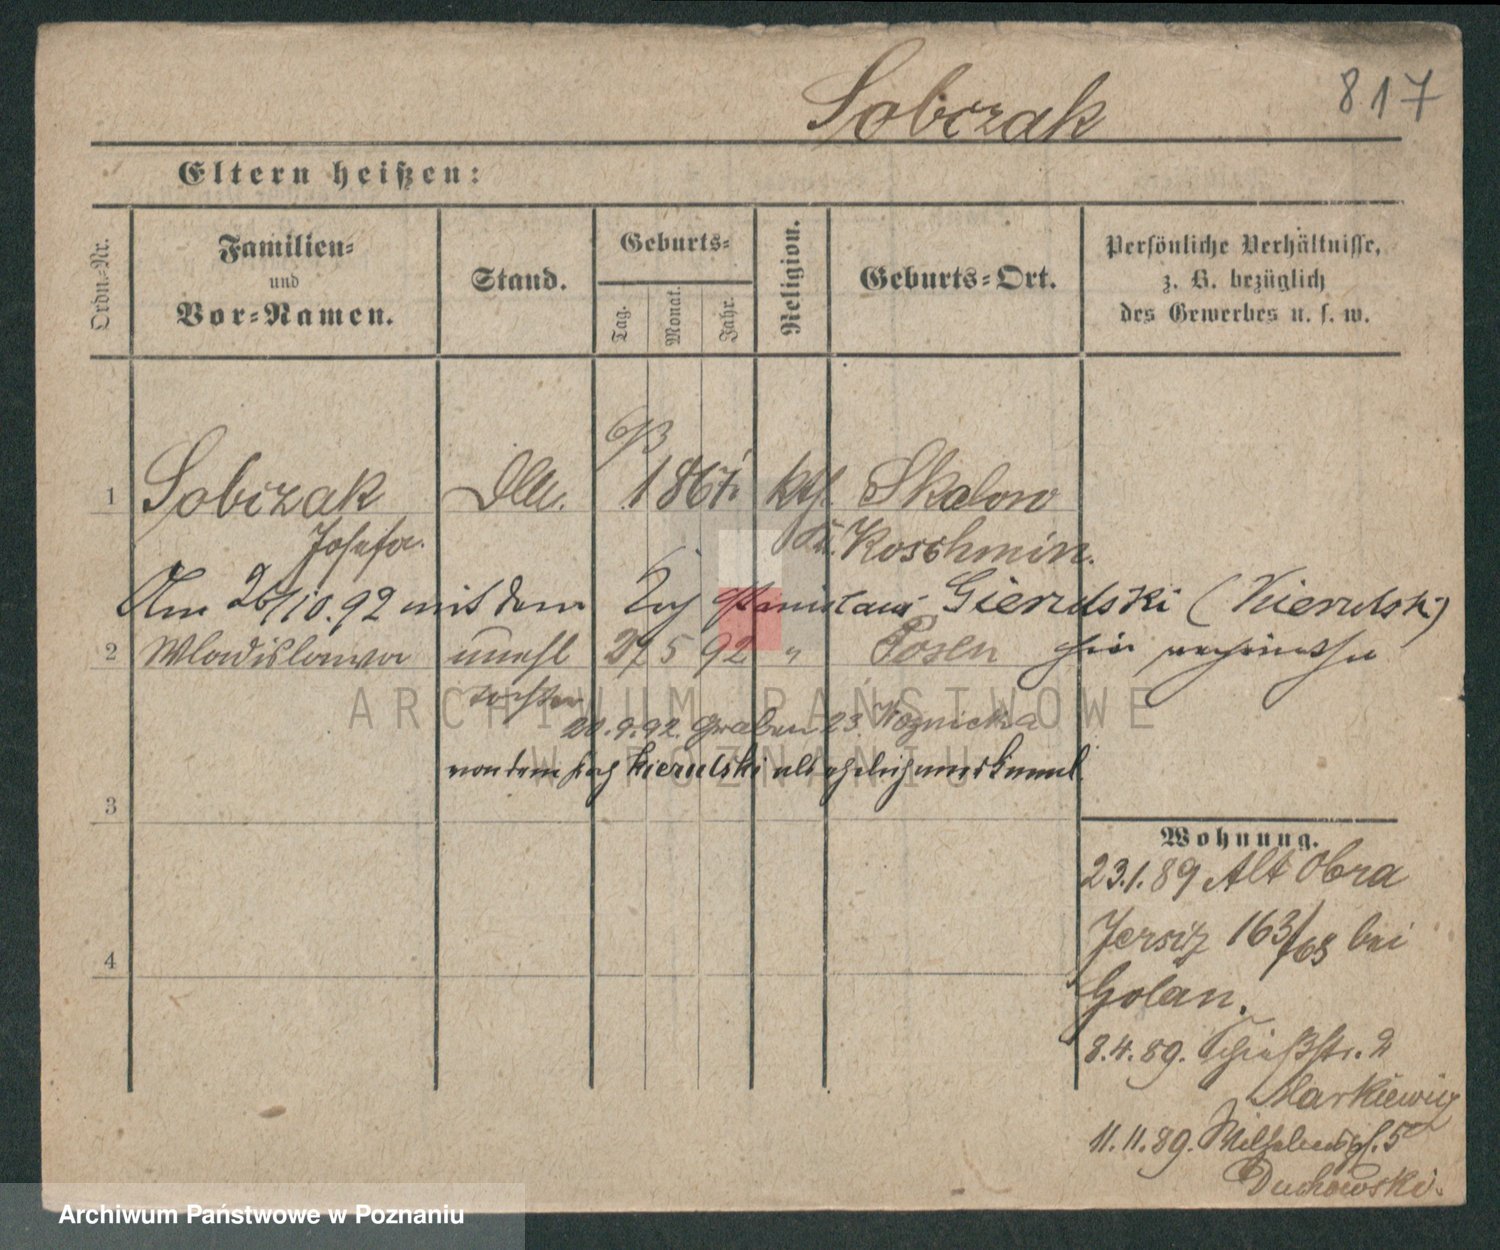 817
Sobczak
Eltern heißen:
Ordn.-Nr.
Familien-
und
Vor-Namen.
Stand.
Geburts-
Tag.
Monat.
Jahr.
Religion.
Geburts-Ort.
Persönliche Verhältnisse,
z. B. bezüglich
des Gewerbes u. s. w.
6/3
1 Sobczak 1867 kth. Skalow
Josefa. Kr. Koschmin.
Am 26/10.92 mit dem Stanislaus Gierulski (Kierulski)
2 Wladislawa unehl 27 5 92 " Posen hier verheirathet
tochter
20.9.92. Graben 23 Woznicka
von dem Kierulski als ehelich anerkannt.
3
4
Wohnung.
23.1.89 Alt Obra
Jersitz 163/68 bei
Golan.
8.4.89. Schießstr. 2
Markiewicz
11.11.89. Wilhelmspl. 5
Duchowski.
ARCHIWUM PAŃSTWOWE
W POZNANIU
Archiwum Państwowe w Poznaniu